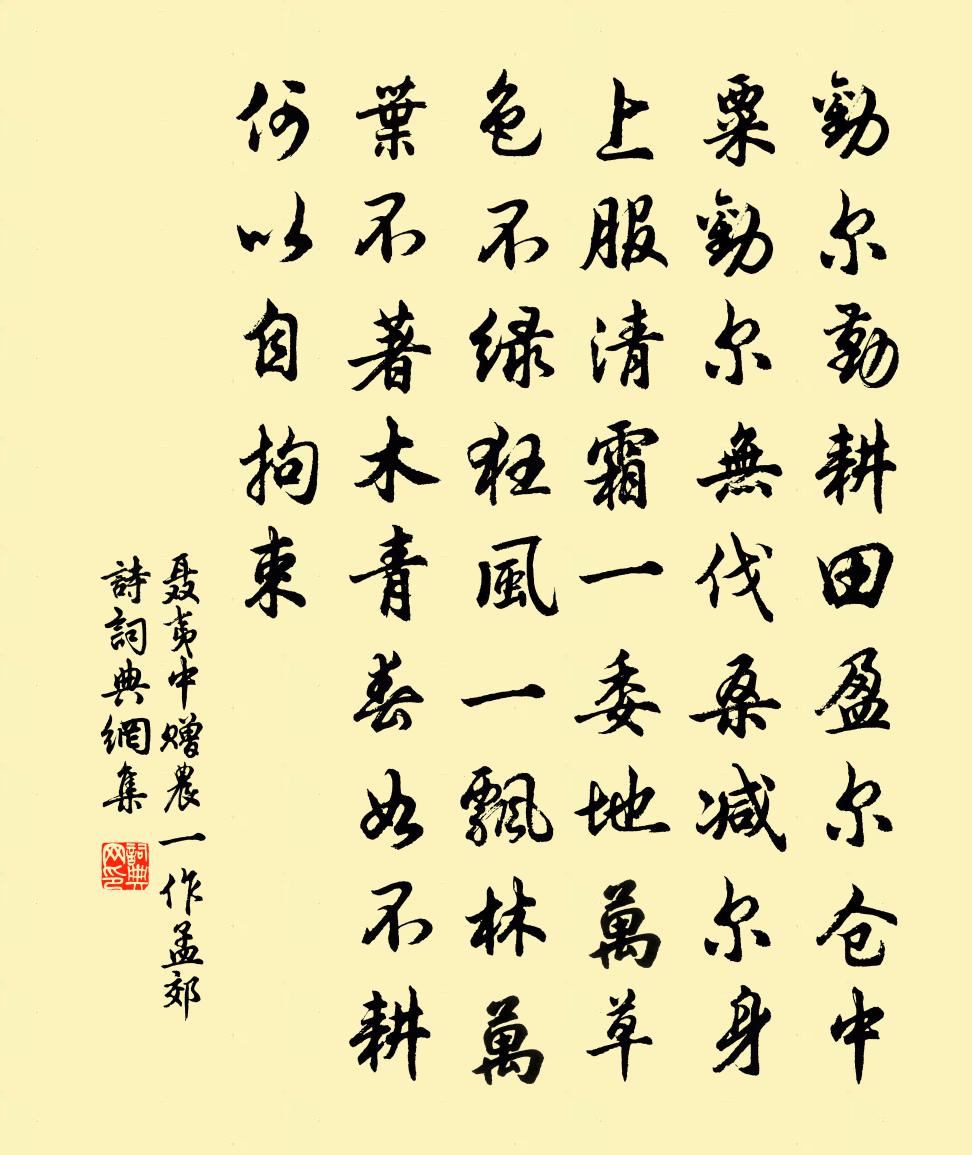 勸尔勤耕田盈尔仓中
粟勸尔無伐桑减尔身
上服清霜一委地萬草
色不绿狂風一飄林萬
葉不著木青春如不耕
何以自拘束
聂夷中赠農一作孟郊
詩詞典網集
詞典网印